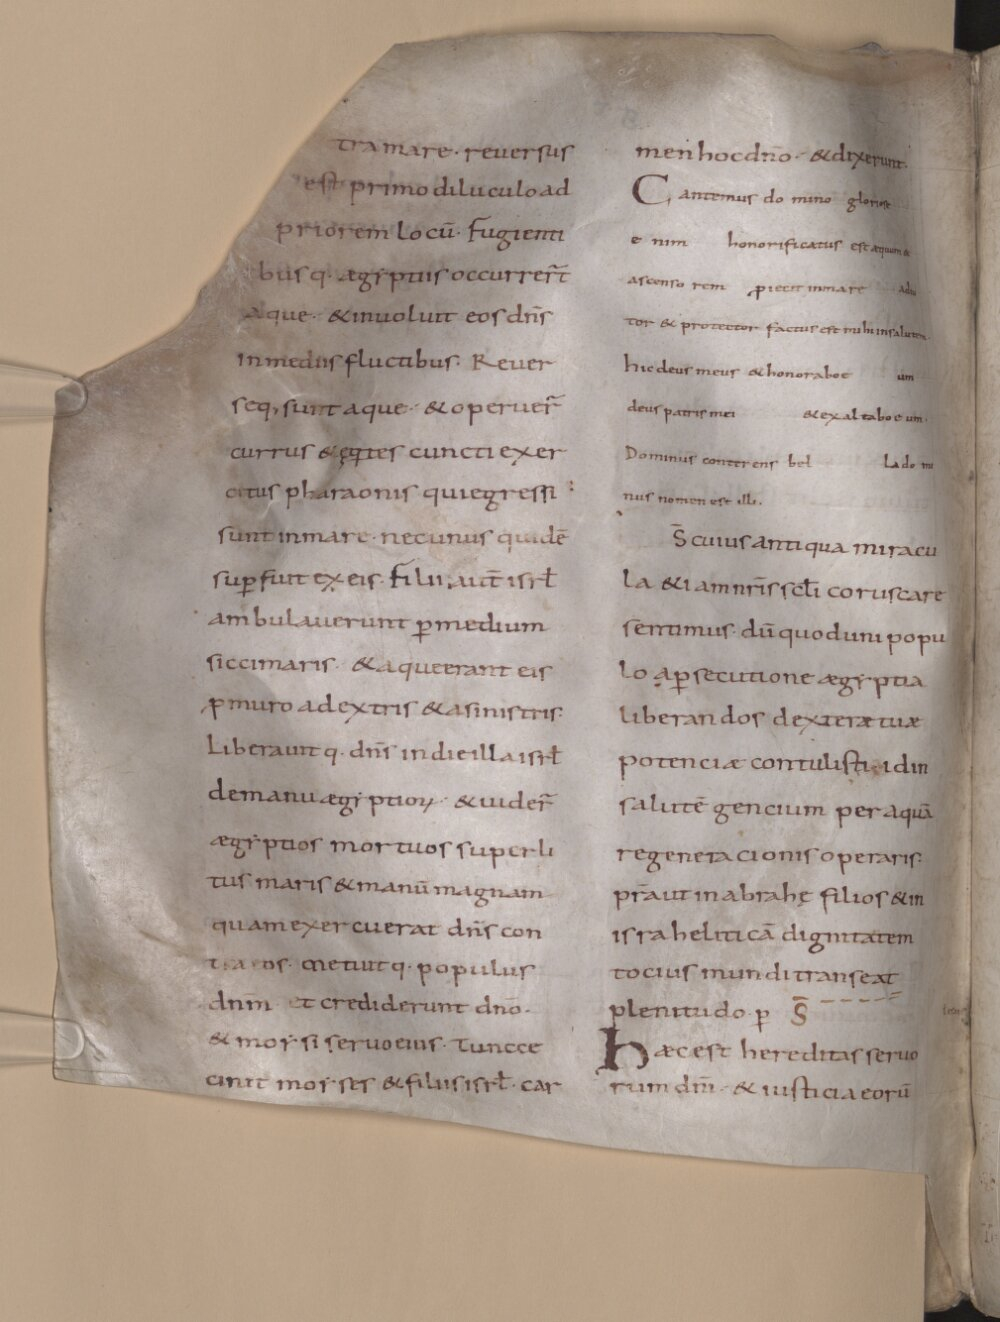 tra mare · reversus
est primo diluculo ad
priorem locū · fugienti
busq · ægyptiis occurrer̄t
aque · & involvit eos dn̄s
in mediis fluctibus · Rever
seq; sunt aque · & operuer̄
currus & eq̄tes cuncti exer
citus pharaonis qui egressi
sunt in mare · nec unus quidē
sup̄ fuit ex eis · Filii aut̄ isrł
ambulaverunt ꝑ medium
sicci maris · & aque erant eis
ꝓ muro a dextris & a sinistris ·
Liberavitq · dn̄s in die illa isrł
de manu ægyptioꝝ · & uider̄
ægyptios mortuos super li
tus maris & manū magnam
quam exercuerat dn̄s con
tra eos · Metuitq · populus
dn̄m · et crediderunt dn̄o ·
& moysi servo eius · Tunc ce
cinit moyses & filii isrł · car
men hoc dn̄o · & dixerunt ·
Cantemus domino gloriose
enim honorificatus est æquum &
ascensorem ꝓiecit in mare adiu
tor & protector factus est mihi in salutem
hic deus meus & honorabo e um
deus patris mei & exaltabo eum ·
Dominus conterens bel la domi
nus nomen est illi ·
D̄s cuius antiqua miracu
la & iam nr̄is scl̄i coruscare
sentimus · dū quod uni popu
lo a ꝑsecutione ægyptia
liberandos dexteræ tuæ
potenciæ contulisti · id in
salutē gencium per aquā
regeneracionis operaris ·
pr̄a ut in abrahę filios & in
israheliticā dignitatem
tocius mundi transeat
plenitudo · ꝑ D̄S
Hæc est hereditas servo
rum dn̄i · & iusticia eorū